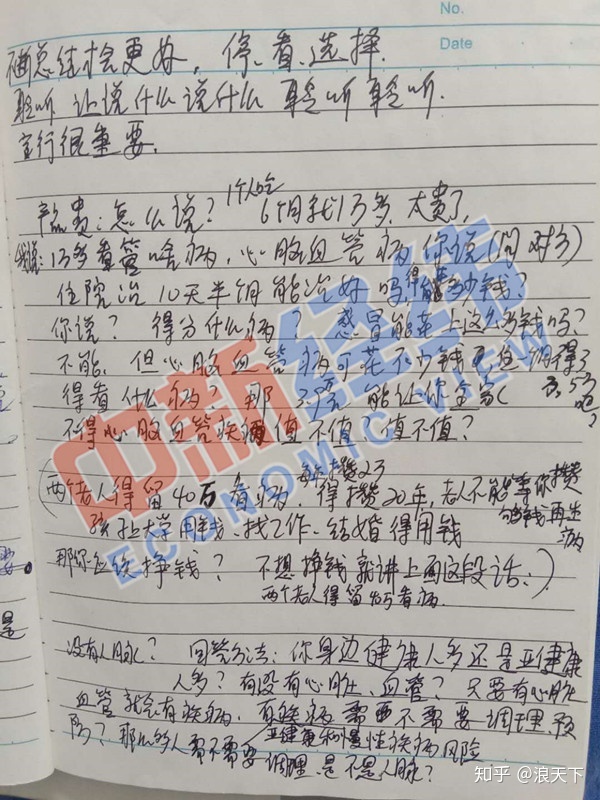 No.
Date
总结才会更好，停、看、选择.
聆听 让说什么说什么 聆听 聆听.
言行很重要.
1个人吃
产品贵：怎么说？ 6个月就1万多，太贵了，
我说：1万多看管啥病，心脑血管病你说（问对方）
住院治10天半个月能治好吗，得多少钱？
你说？ 得分什么病？ 感冒能花上这么多钱吗？
不能，但心脑血管病可花不少钱
得看什么病？ 那 能让你全家
不得心脑血管疾病值不值？值不值？
两个老人得留40万看病，每年攒2万 得攒20年，老人不能等你攒
够钱再生病
孩子上大学用钱、找工作、结婚得用钱
那你应该挣钱？ 不想挣钱就讲上面这段话：）
两个老人得留40万看病
没有人脉？ 回答方法：你身边健康人多还是亚健康
人多？有没有心脏、血管？ 只要有心脏
血管就会有疾病，有疾病需不需要调理，预
防？那么多人需不需要调理，是不是人脉？
亚健康和慢性疾病风险
中新经纬
ECONOMIC VIEW
知乎 @浪天下